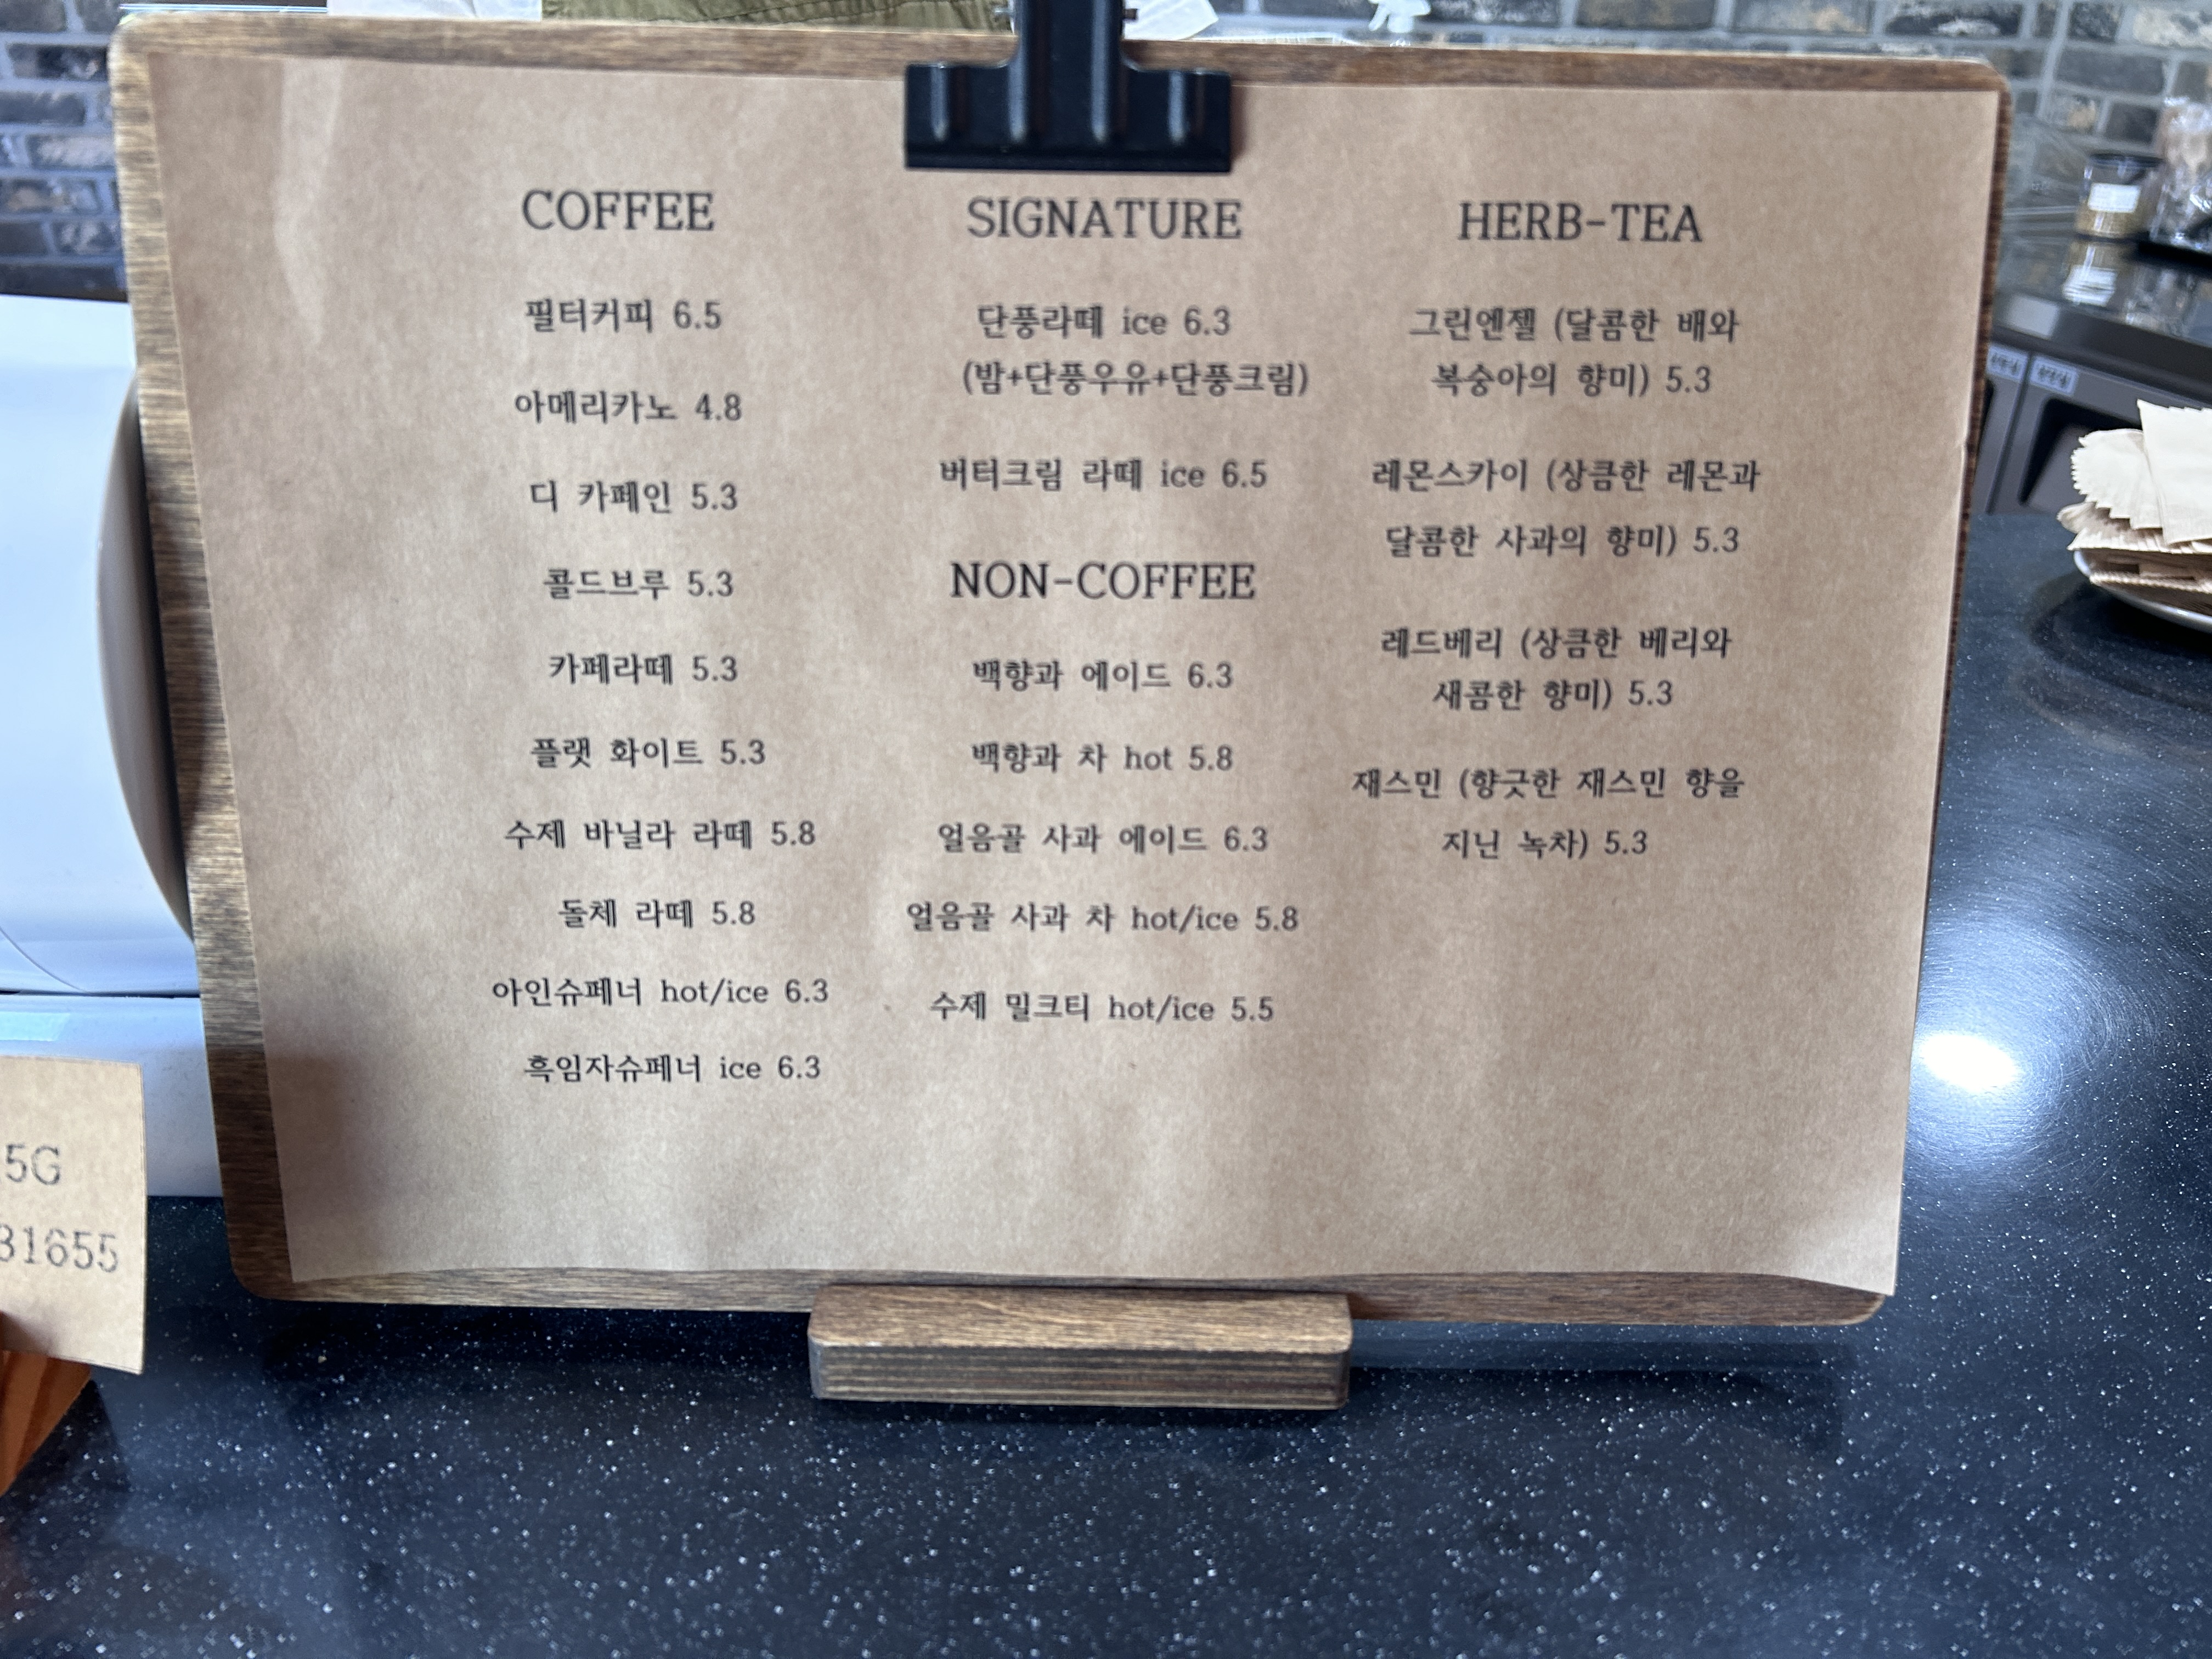 COFFEE
필터커피 6.5
아메리카노 4.8
디 카페인 5.3
콜드브루 5.3
카페라떼 5.3
플랫 화이트 5.3
수제 바닐라 라떼 5.8
돌체 라떼 5.8
아인슈페너 hot/ice 6.3
흑임자슈페너 ice 6.3
SIGNATURE
단풍라떼 ice 6.3
(밤+단풍우유+단풍크림)
버터크림 라떼 ice 6.5
NON-COFFEE
백향과 에이드 6.3
백향과 차 hot 5.8
얼음골 사과 에이드 6.3
얼음골 사과 차 hot/ice 5.8
수제 밀크티 hot/ice 5.5
HERB-TEA
그린엔젤 (달콤한 배와
복숭아의 향미) 5.3
레몬스카이 (상큼한 레몬과
달콤한 사과의 향미) 5.3
레드베리 (상큼한 베리와
새콤한 향미) 5.3
재스민 (향긋한 재스민 향을
지닌 녹차) 5.3
5G
31655